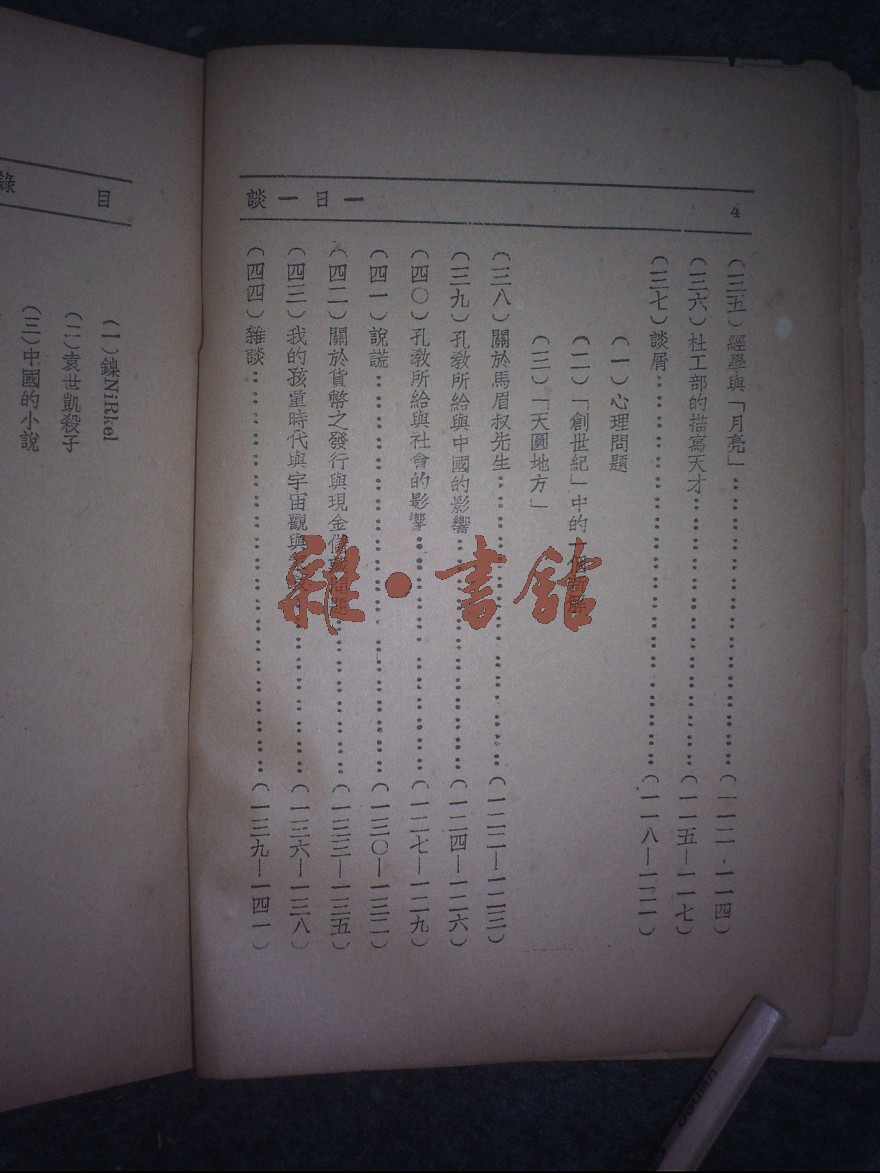 一日一談
4
(三五)經學與「月亮」……(一一二-一一四)
(三六)杜工部的描寫天才……(一一五—一一七)
(三七)談屑……(一一八—一二一)
(一)心理問題
(二)「創世紀」中的一個問題
(三)「天圓地方」
(三八)關於馬眉叔先生……(一二二—一二三)
(三九)孔教所給與中國的影響……(一二四—一二六)
(四〇)孔教所給與社會的影響……(一二七—一二九)
(四一)說謊……(一三〇—一三二)
(四二)關於貨幣之發行與現金問題……(一三三—一三五)
(四三)我的孩童時代與宇宙觀與……(一三六—一三八)
(四四)雜談……(一三九—一四一)
目錄
(一)鎳NiRkel
(二)袁世凱殺子
(三)中國的小說
雜·書館